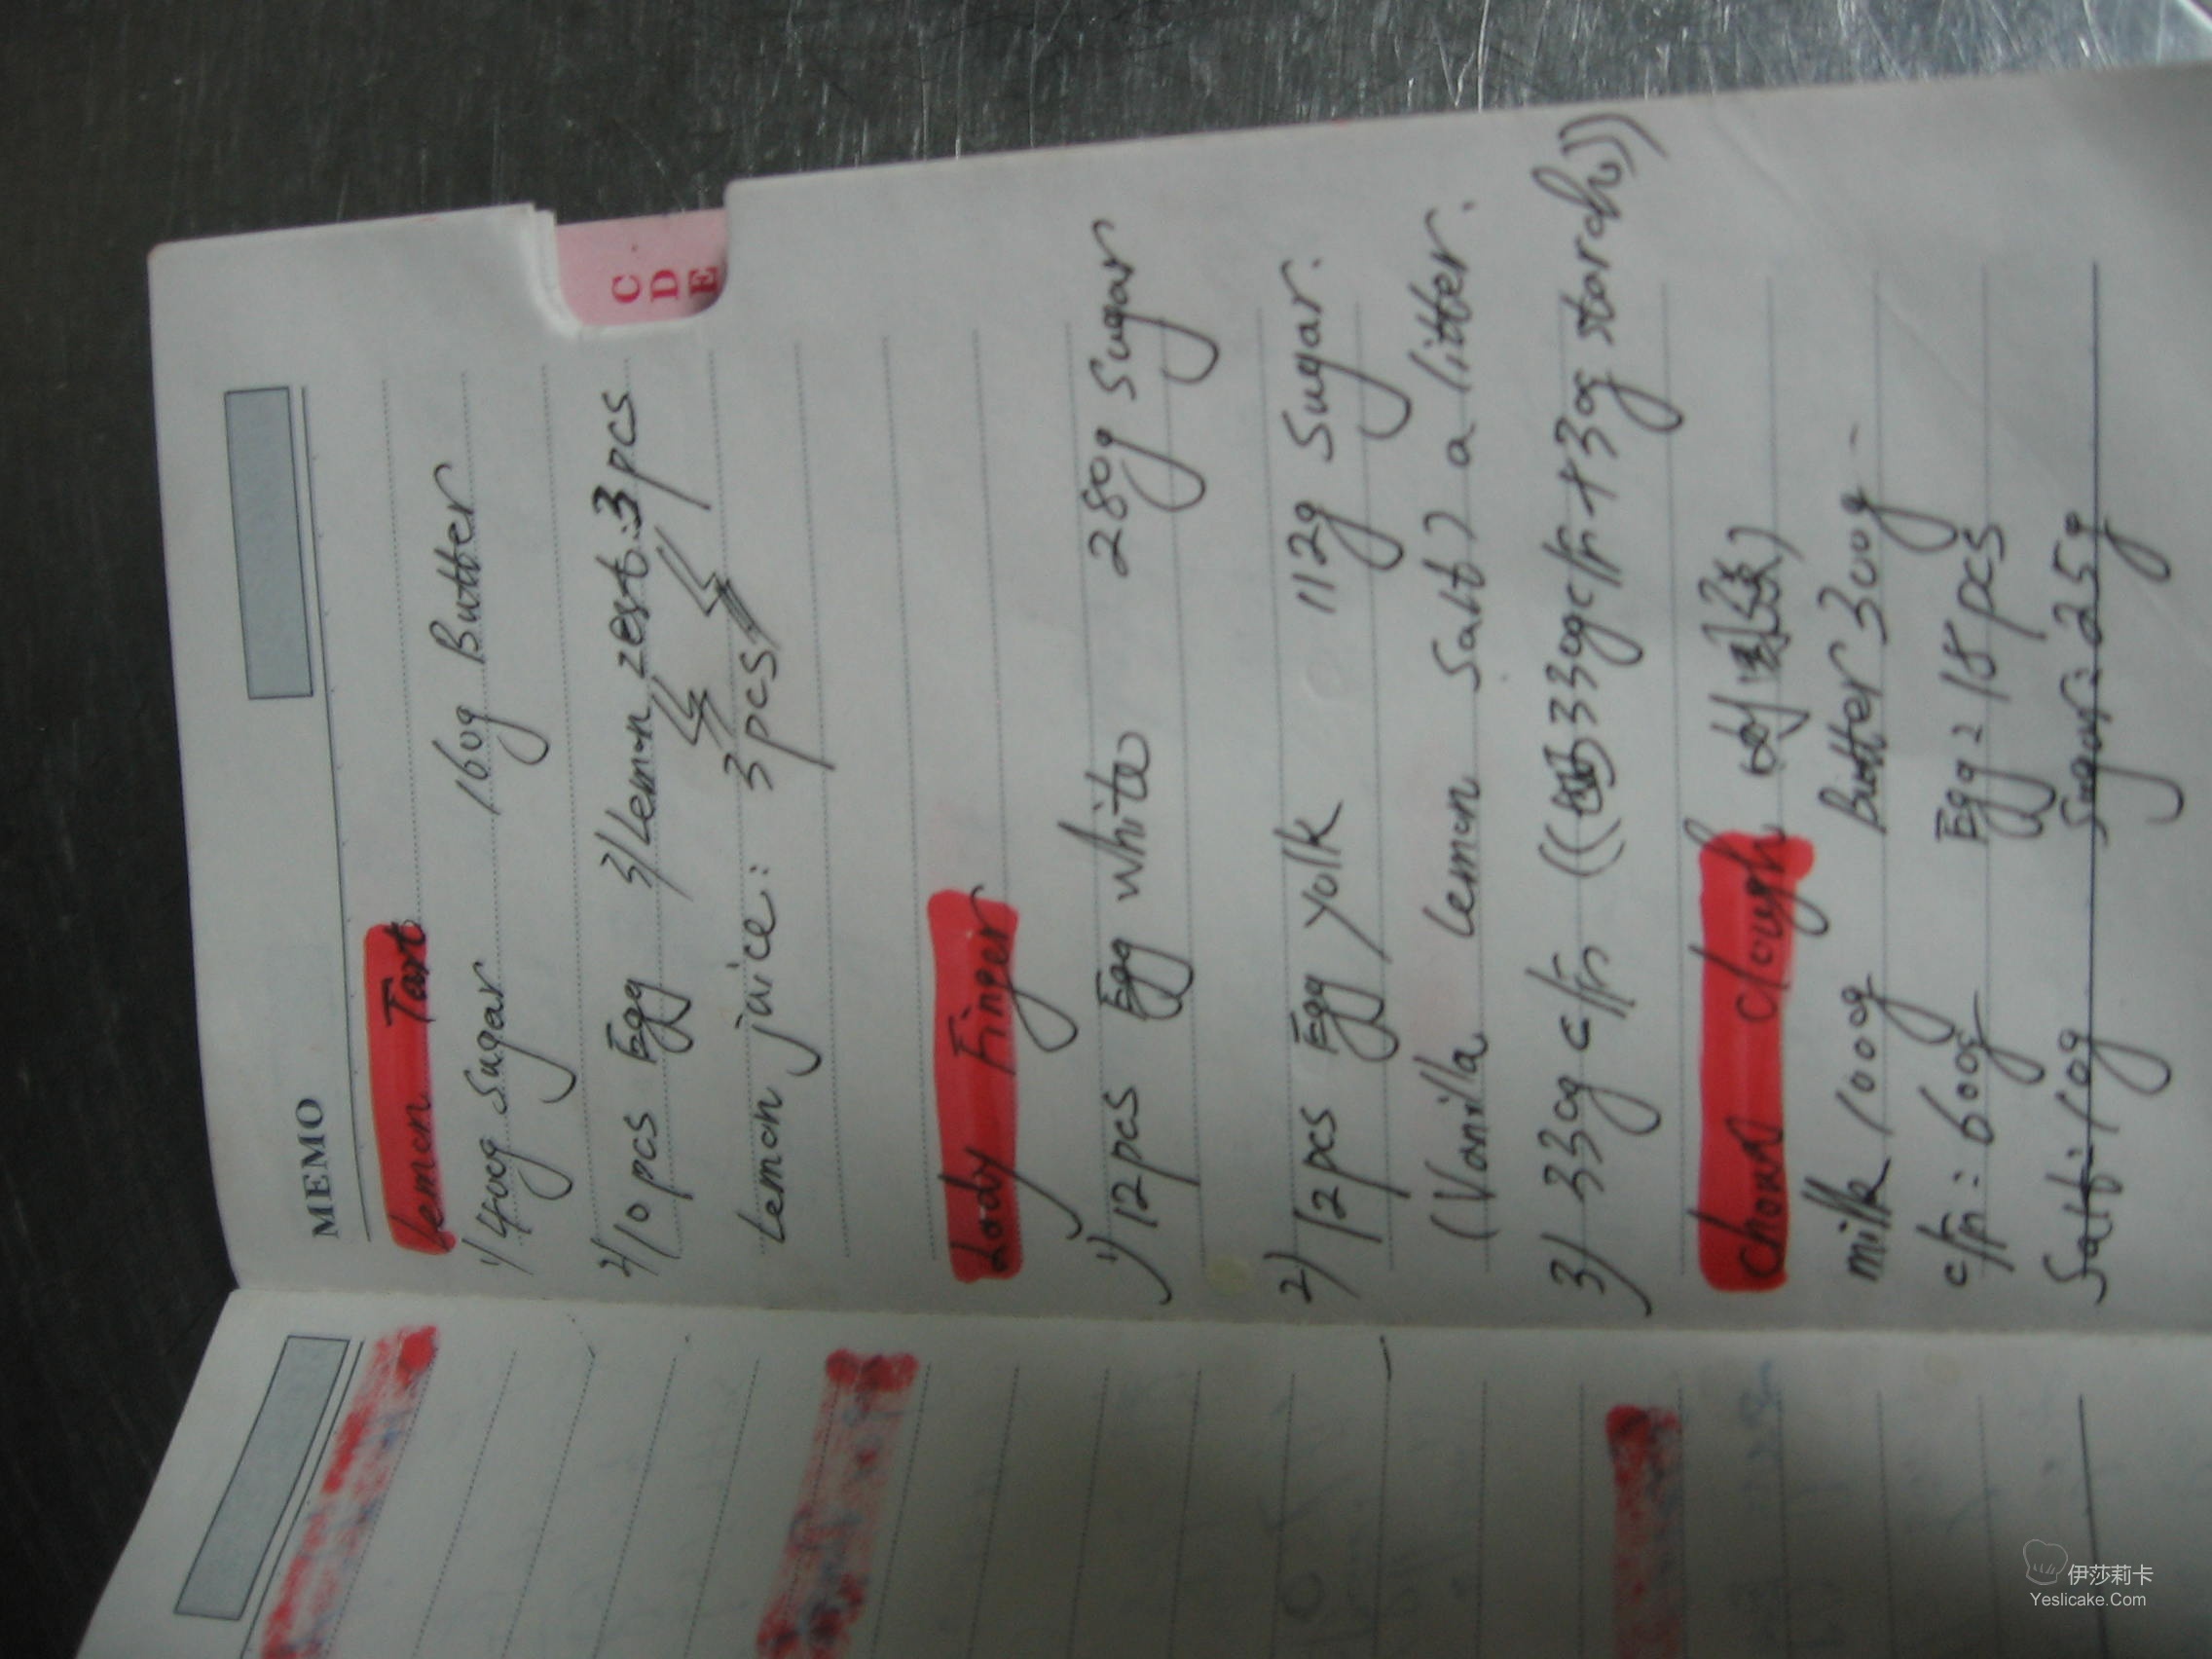 MEMO
C
D
E
Lemon Tart
1) 400g Sugar 160g Butter
2) 10 pcs Egg 3) Lemon zest: 3 pcs
Lemon juice: 3 pcs
Lady Finger
1) 12 pcs Egg white 280g Sugar
2) 12 pcs Egg yolk 112g Sugar.
(Vanilla Lemon Salt) a litter.
3) 33g c/fr 33g c/fr + 3g starch))
dough
milk 1000g Butter 300g
c/fr: 600g Egg = 18 pcs
Salt: 10g Sugar: 25g
伊莎莉卡
Yeslicake.Com